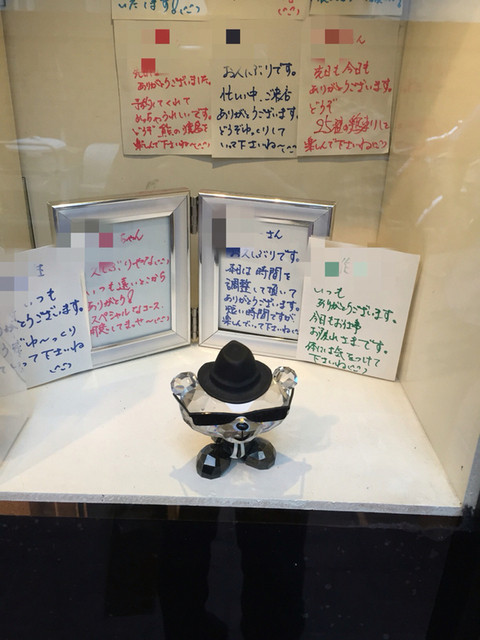 いたします!
さん
先日は
ありがとうございました。
予約してくれて
めっちゃうれしいです。
どうぞ
楽しんで下さいね
お久しぶりです。
忙しい中、ご来店
ありがとうございます。
どうぞゆっくりして
いって下さいね
先日も今日も
ありがとうございます。
どうぞ
楽しんで下さいね
ちゃん
久しぶりやがな
いつも遠いとこから
ありがとう!
スペシャルなコース、
用意してまっせ〜
さん
お久しぶりです。
本日は時間を
調整して頂いて
ありがとうございます。
短い時間ですが
楽しんでいって下さいね
いつも
ありがとうございます。
ゆ〜っくり
って下さいね
いつも
ありがとうございます。
今日もお仕事
お疲れさまです。
体には気をつけて
下さいね